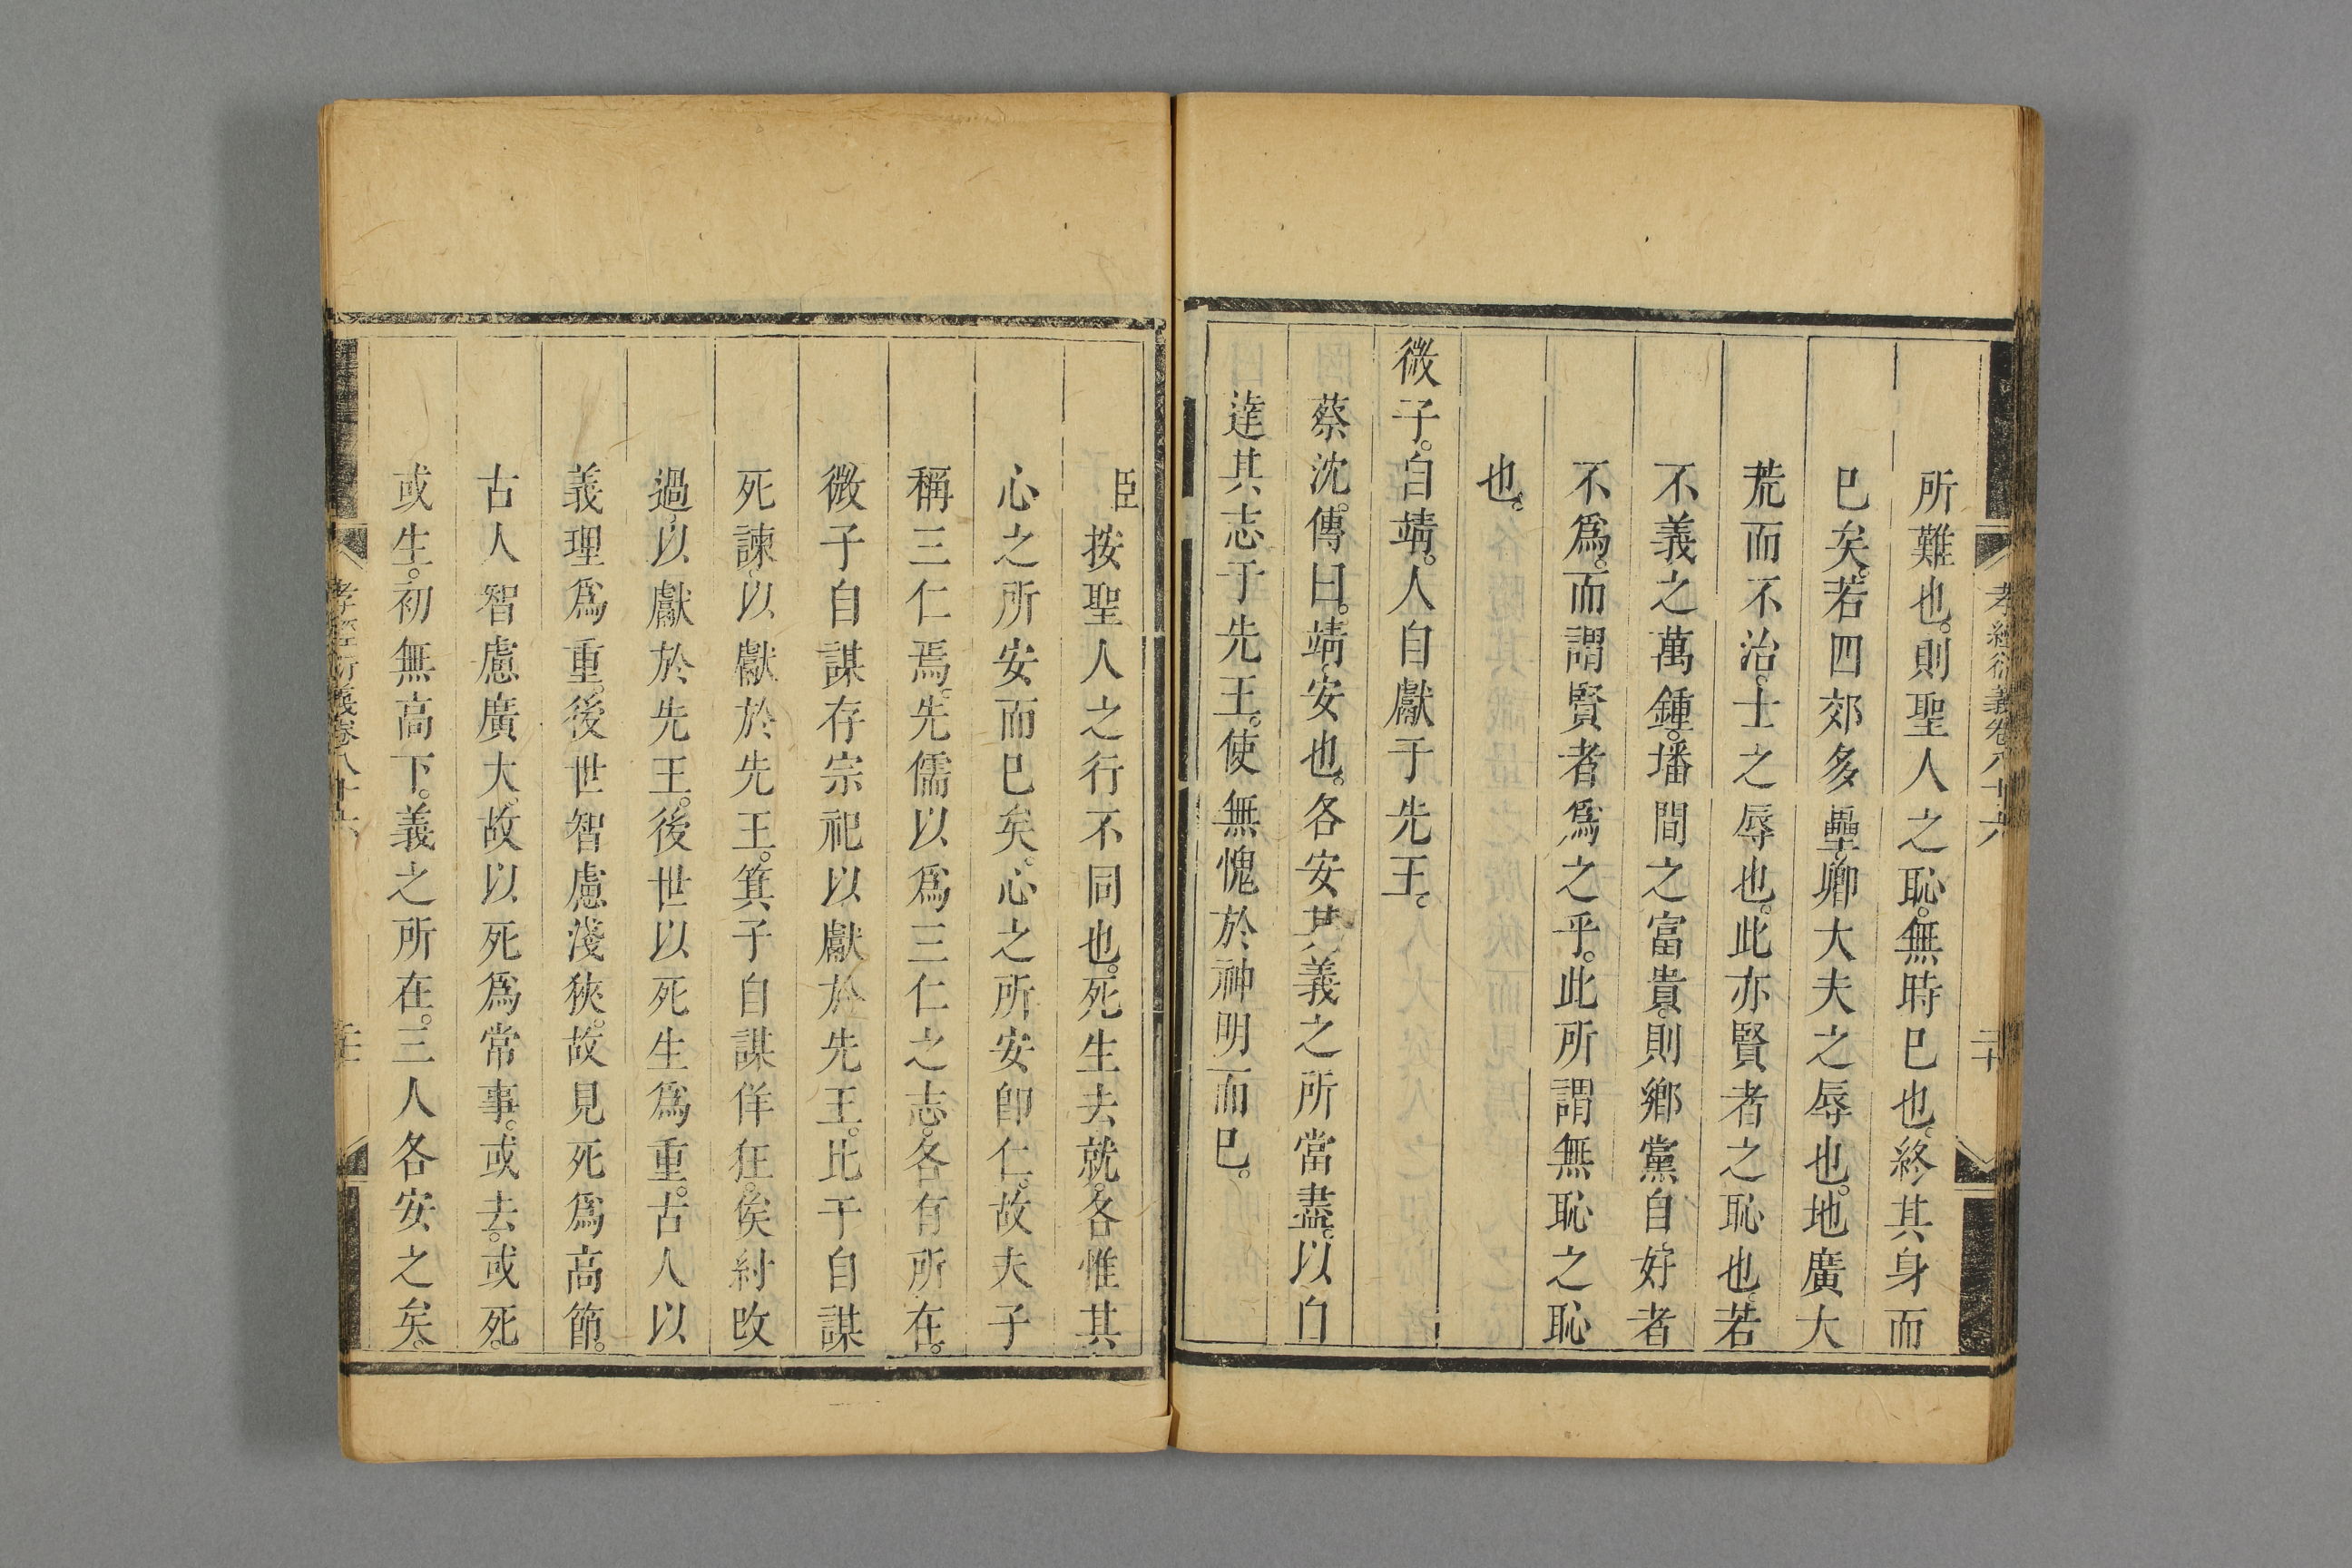 孝經衍義卷八十六
二十
所難也。則聖人之恥。無時已也。終其身而
已矣。若四郊多壘。卿大夫之辱也。地廣大
荒而不治。士之辱也。此亦賢者之恥也。若
不義之萬鍾。墦間之富貴。則鄉黨自好者
不爲。而謂賢者爲之乎。此所謂無恥之恥
也。
微子。自靖。人自獻于先王。
蔡沈。傳曰。靖。安也。各安其義之所當盡。以自
達其志于先王。使無愧於神明而已。
臣按聖人之行不同也。死生去就。各惟其
心之所安而已矣。心之所安卽仁。故夫子
稱三仁焉。先儒以爲三仁之志。各有所在。
微子自謀存宗祀以獻於先王。比干自謀
死諫。以獻於先王。箕子自謀佯狂。俟紂改
過。以獻於先王。後世以死生爲重。古人以
義理爲重。後世智慮淺狹。故見死爲高節。
古人智慮廣大。故以死爲常事。或去。或死。
或生。初無高下。義之所在。三人各安之矣。
孝經衍義卷八十六